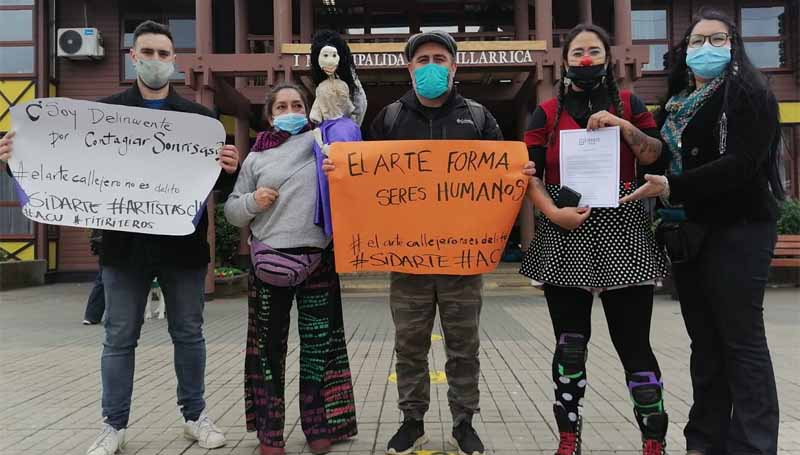 I. MUNICIPALIDAD VILLARRICA
¿Soy Delincuente
por Contagiar Sonrisas?
#el arte callejero no es delito
#SIDARTE #ARTISTAS
#ACU #TITIRITEROS
EL ARTE FORMA
SERES HUMANOS
#el arte callejero no es delito
#SIDARTE #ACU